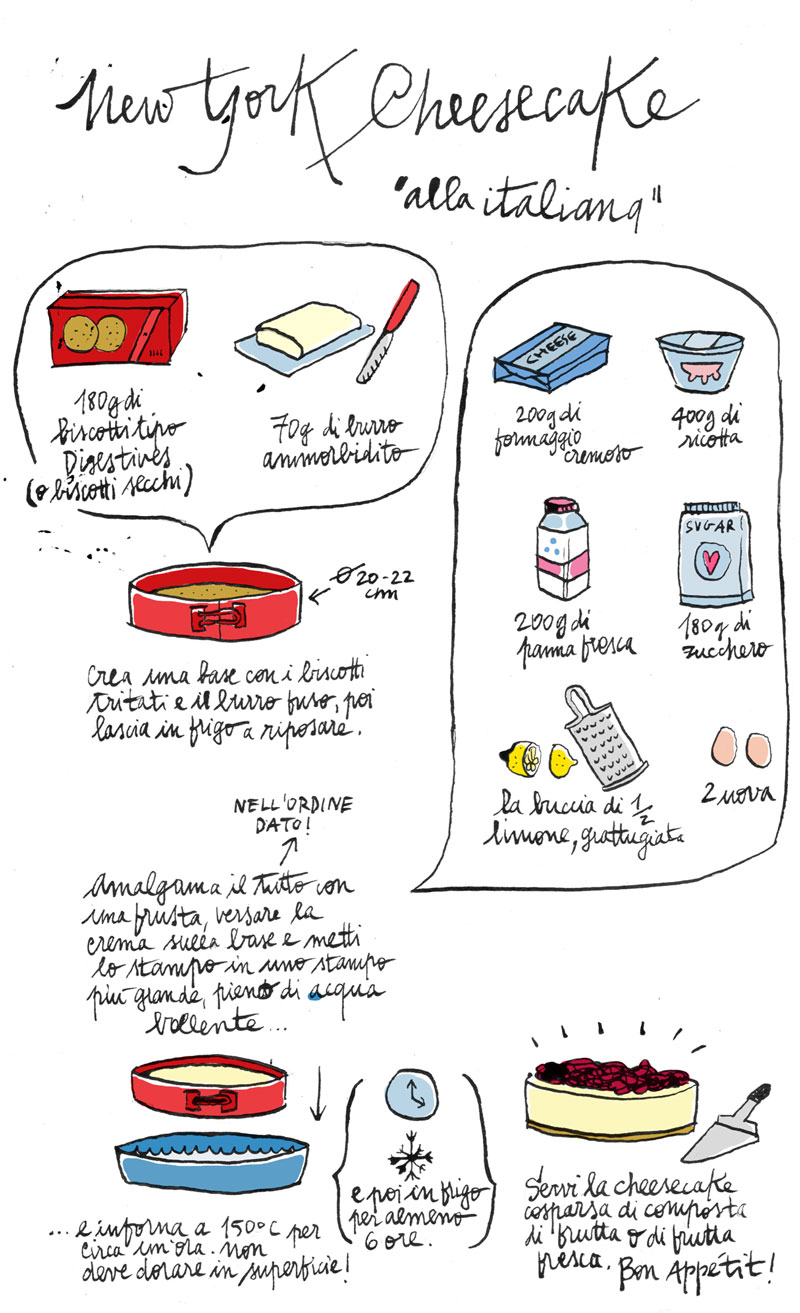 New York Cheesecake
"alla italiana"
180g di
biscotti tipo
Digestives
(o biscotti secchi)
70g di burro
ammorbidito
Ø 20-22
cm
Crea una base con i biscotti
tritati e il burro fuso, poi
lascia in frigo a riposare.
CHEESE
200g di
formaggio
cremoso
400g di
ricotta
200g di
panna fresca
SUGAR
180g di
zucchero
la buccia di 1/2
limone, grattugiata
2 uova
NELL'ORDINE
DATO!
Amalgama il tutto con
una frusta, versare la
crema sulla base e metti
lo stampo in uno stampo
più grande, pieno di acqua
bollente...
... e inforna a 150°C per
circa un'ora. non
deve dorare in superficie!
e poi in frigo
per almeno
6 ore.
Servi la cheesecake
cosparsa di composta
di frutta o di frutta
fresca. Bon Appétit!